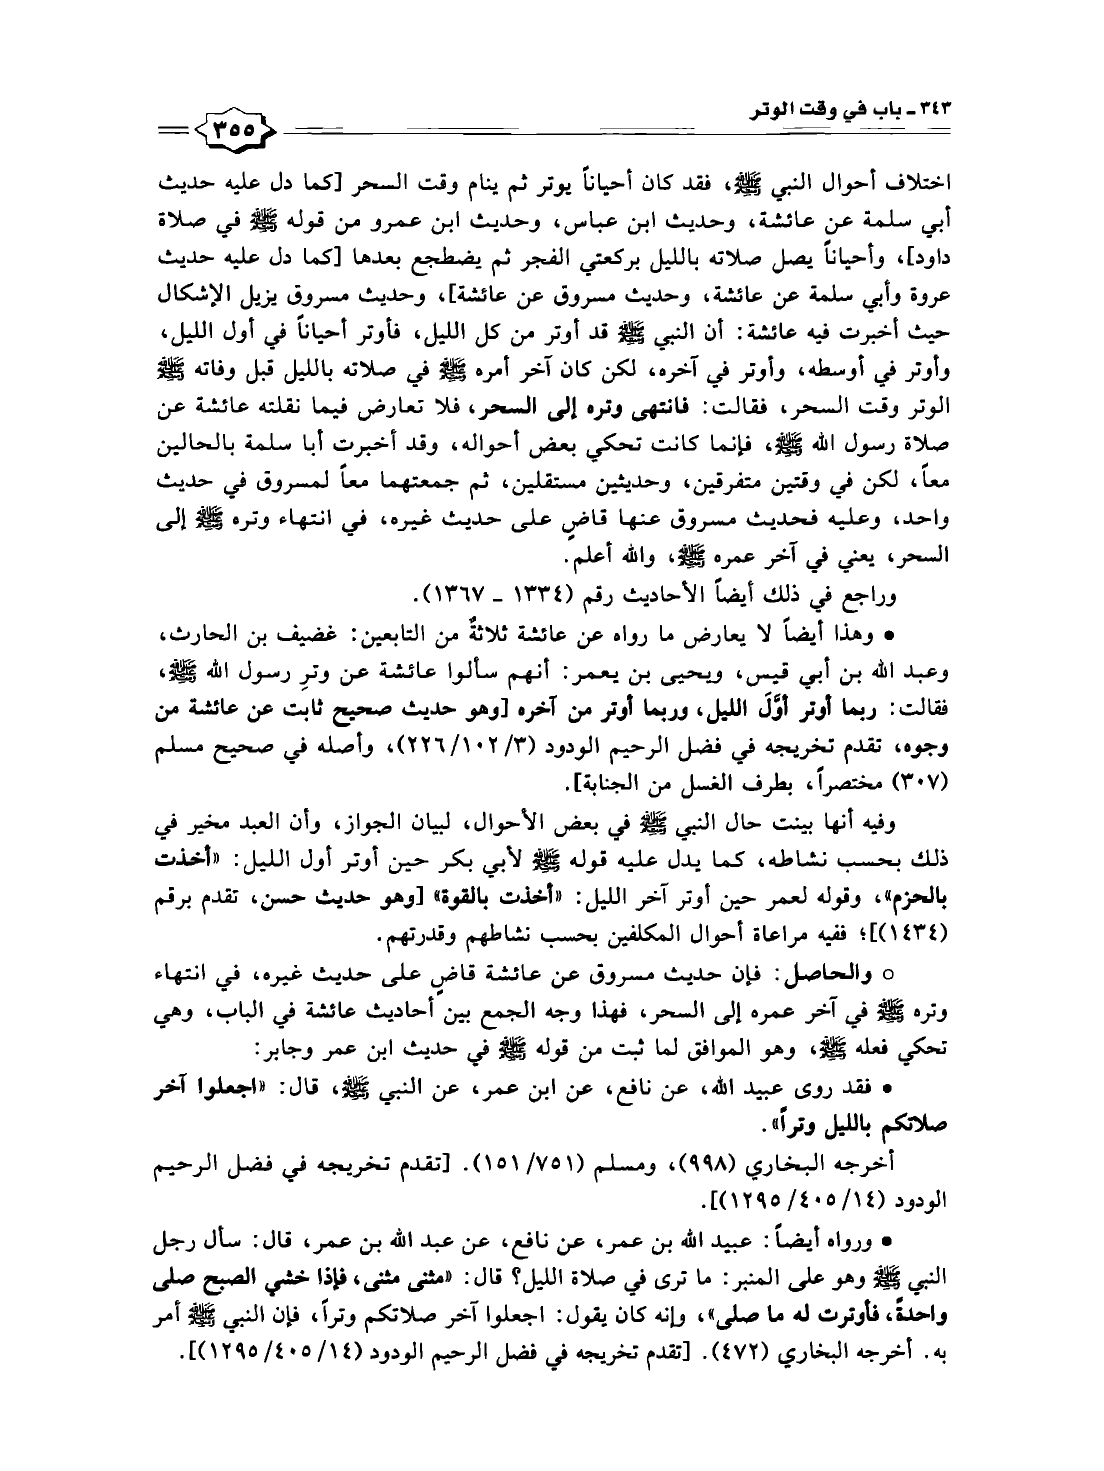 ٣٤٣ - باب في وقت الوتر
٣٥٥
اختلاف أحوال النبي ﷺ، فقد كان أحياناً يوتر ثم ينام وقت السحر [كما دل عليه حديث
أبي سلمة عن عائشة، وحديث ابن عباس، وحديث ابن عمرو من قوله ﷺ في صلاة
داود]، وأحياناً يصل صلاته بالليل بركعتي الفجر ثم يضطجع بعدها [كما دل عليه حديث
عروة وأبي سلمة عن عائشة، وحديث مسروق عن عائشة]، وحديث مسروق يزيل الإشكال
حيث أخبرت فيه عائشة: أن النبي ﷺ قد أوتر من كل الليل، فأوتر أحياناً في أول الليل،
وأوتر في أوسطه، وأوتر في آخره، لكن كان آخر أمره ﷺ في صلاته بالليل قبل وفاته ﷺ
الوتر وقت السحر، فقالت: فانتهى وتره إلى السحر، فلا تعارض فيما نقلته عائشة عن
صلاة رسول الله ﷺ، فإنما كانت تحكي بعض أحواله، وقد أخبرت أبا سلمة بالحالين
معاً، لكن في وقتين متفرقين، وحديثين مستقلين، ثم جمعتهما معاً لمسروق في حديث
واحد، وعليه فحديث مسروق عنها قاضٍ على حديث غيره، في انتهاء وتره ﷺ إلى
السحر، يعني في آخر عمره ﷺ، والله أعلم.
وراجع في ذلك أيضاً الأحاديث رقم (١٣٣٤ - ١٣٦٧).
• وهذا أيضاً لا يعارض ما رواه عن عائشة ثلاثةٌ من التابعين: غضيف بن الحارث،
وعبد الله بن أبي قيس، ويحيى بن يعمر: أنهم سألوا عائشة عن وترِ رسول الله ﷺ،
فقالت: ربما أوتر أوَّلَ الليل، وربما أوتر من آخره [وهو حديث صحيح ثابت عن عائشة من
وجوه، تقدم تخريجه في فضل الرحيم الودود (٢٢٦/١٠٢/٣)، وأصله في صحيح مسلم
(٣٠٧) مختصراً، بطرف الغسل من الجنابة].
وفيه أنها بينت حال النبي ﷺ في بعض الأحوال، لبيان الجواز، وأن العبد مخير في
ذلك بحسب نشاطه، كما يدل عليه قوله ﷺ لأبي بكر حين أوتر أول الليل: «أخذت
بالحزم»، وقوله لعمر حين أوتر آخر الليل: «أخذت بالقوة» [وهو حديث حسن، تقدم برقم
(١٤٣٤)]؛ ففيه مراعاة أحوال المكلفين بحسب نشاطهم وقدرتهم.
○ والحاصل: فإن حديث مسروق عن عائشة قاضٍ على حديث غيره، في انتهاء
وتره ﷺ في آخر عمره إلى السحر، فهذا وجه الجمع بين أحاديث عائشة في الباب، وهي
تحكي فعله ﷺ، وهو الموافق لما ثبت من قوله ﷺ في حديث ابن عمر وجابر:
• فقد روى عبيد الله، عن نافع، عن ابن عمر، عن النبي ﷺ، قال: «اجعلوا آخر
صلاتكم بالليل وتراً».
أخرجه البخاري (٩٩٨)، ومسلم (١٥١/٧٥١). [تقدم تخريجه في فضل الرحيم
الودود (١٢٩٥/٤٠٥/١٤)].
• ورواه أيضاً: عبيد الله بن عمر، عن نافع، عن عبد الله بن عمر، قال: سأل رجل
النبي ﷺ وهو على المنبر: ما ترى في صلاة الليل؟ قال: «مثنى مثنى، فإذا خشي الصبح صلى
واحدةً، فأوترت له ما صلى»، وإنه كان يقول: اجعلوا آخر صلاتكم وتراً، فإن النبي ﷺ أمر
به. أخرجه البخاري (٤٧٢). [تقدم تخريجه في فضل الرحيم الودود (١٢٩٥/٤٠٥/١٤)].